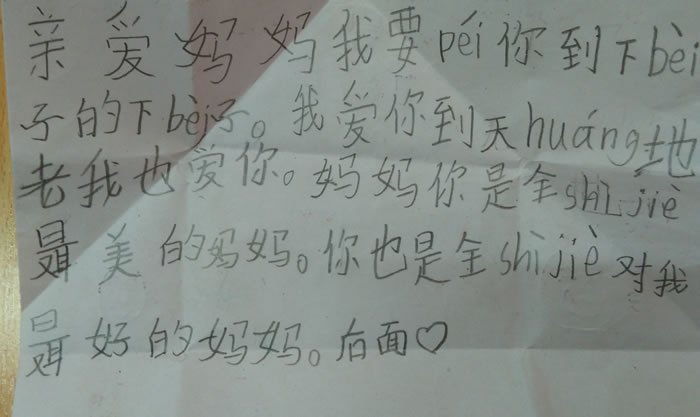 亲爱妈妈我要péi你到下bèi
子的下bèi子。我爱你到天huáng地
老我也爱你。妈妈你是全shì jiè
最美的妈妈。你也是全shì jiè对我
最好的妈妈。后面♡